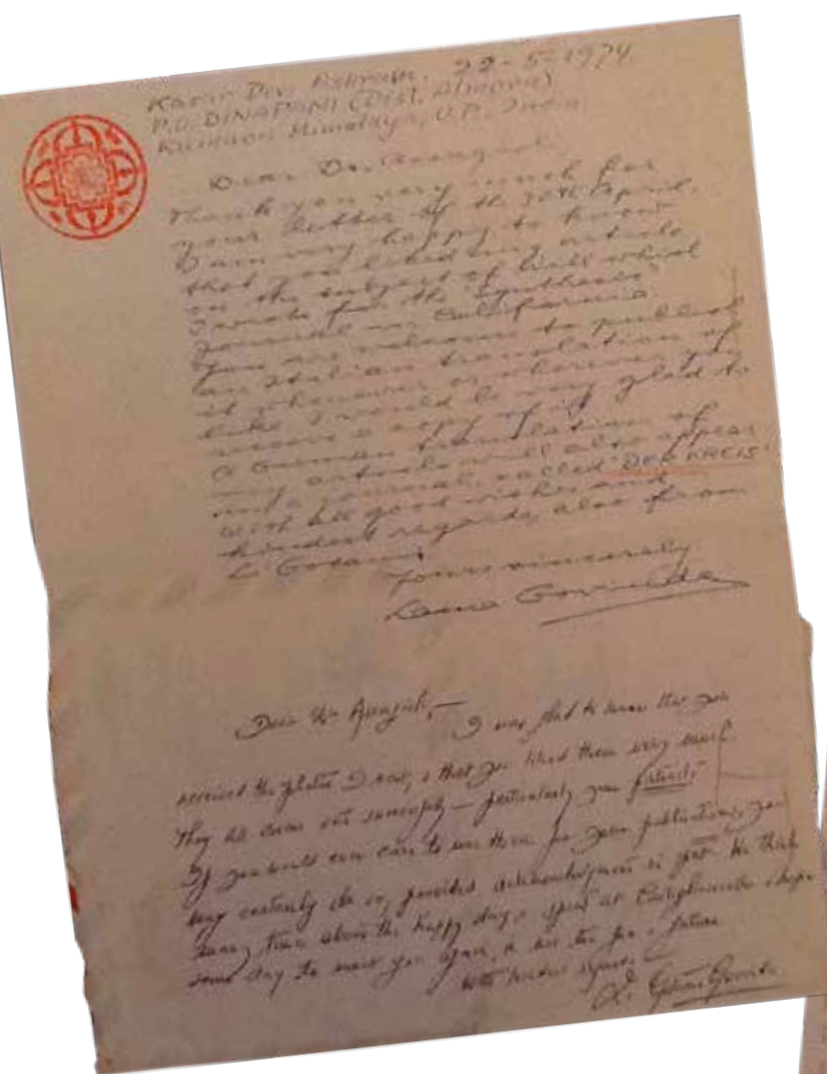 Kasar Devi Ashram, 22-5-1974.
P.O. DINAPANI (Dist. Almora)
Kumaon Himalaya, U.P. India
Dear Dr.
Thank you very much for
your letter of the 30th April.
I am very happy to know
that you liked my article
on the subject of which
I wrote for the "Synthesis"
Journal in California
You are welcome to publish
an Italian translation of
it whenever or wherever you
like. I would be very glad to
receive a copy of it.
A German translation of
my article will also appear
in a journal, called "DER KREIS"
With all good wishes and
kindest regards, also from
Li Gotami
Yours sincerely
Lama Govinda
Dear Dr. — I was glad to know that you
received the photos I sent, & that you liked them very much.
They all came out — particularly your
If you would ever care to use them for your publications, you
may certainly do so, provided acknowledgment is We think
many times about the happy days spent at & hope
some day to meet you again, in the future
With kindest regards
Li Gotami Govinda